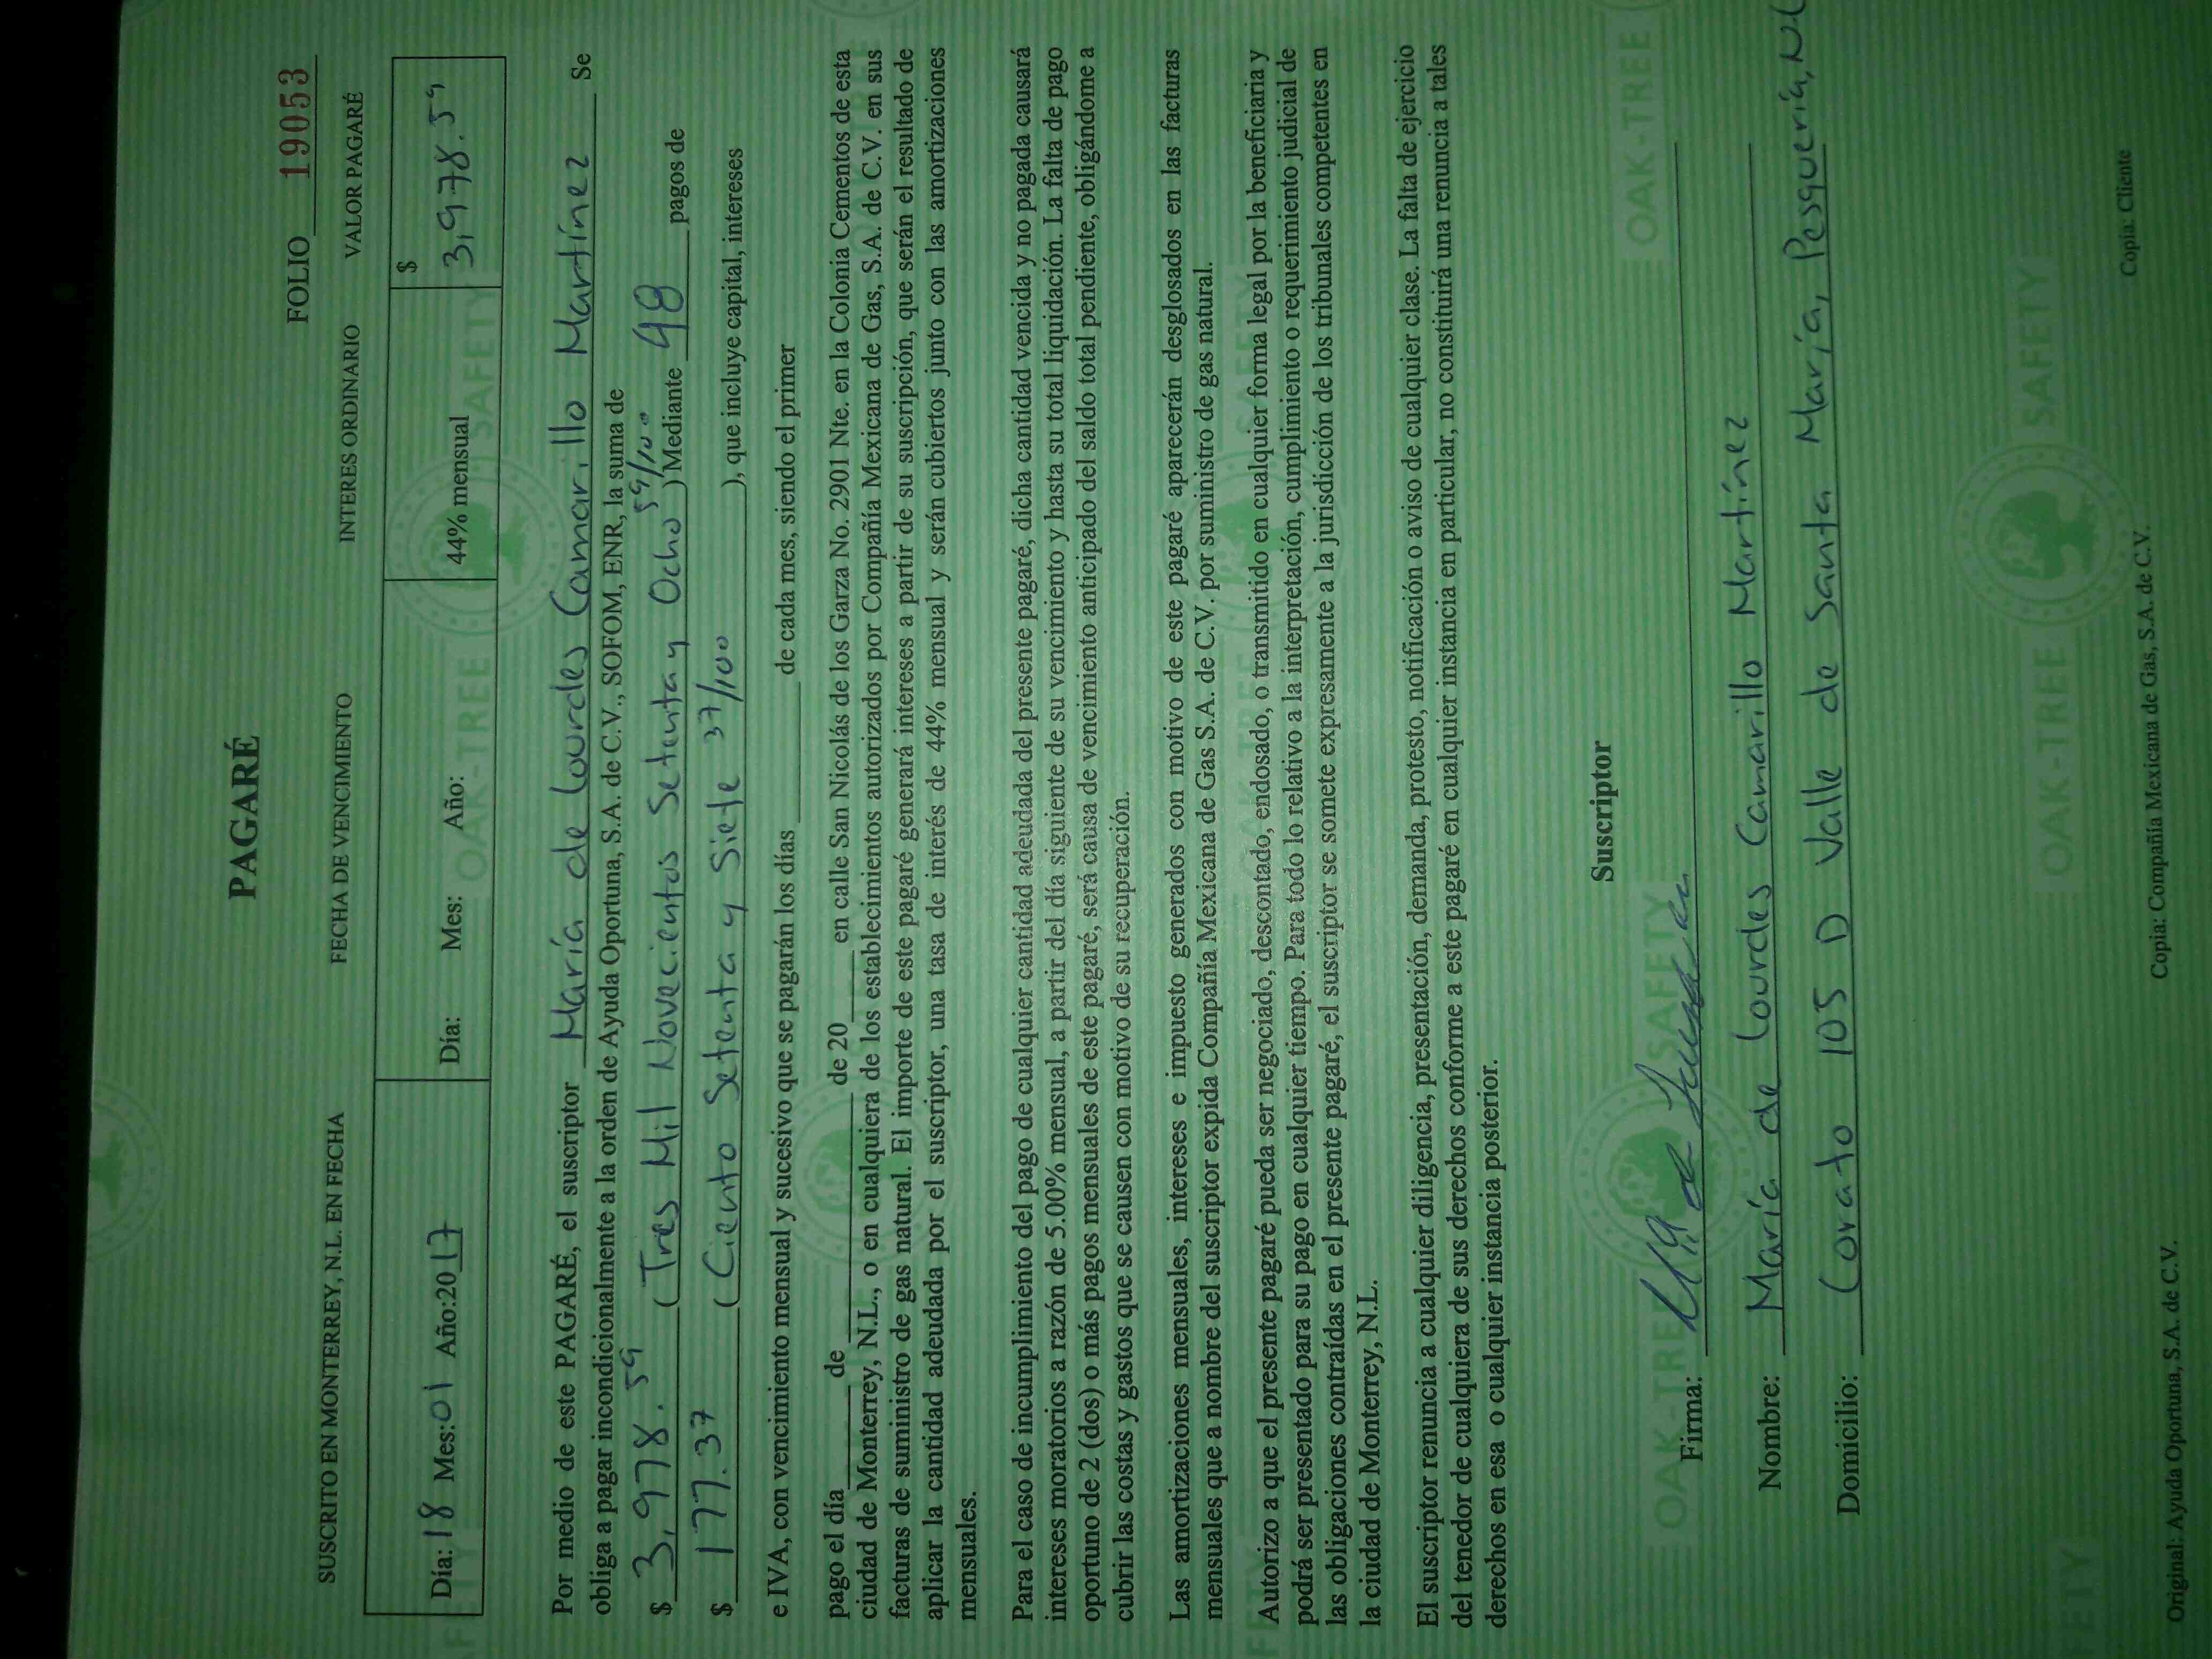 PAGARÉ
FOLIO 19053
SUSCRITO EN MONTERREY, N.L. EN FECHA FECHA DE VENCIMIENTO INTERES ORDINARIO VALOR PAGARÉ
Día: 18 Mes: 01 Año:2017 Día: Mes: Año: 44% mensual $ 3,978.59
Por medio de este PAGARÉ, el suscriptor María de Lourdes Camarillo Martínez Se
obliga a pagar incondicionalmente a la orden de Ayuda Oportuna, S.A. de C.V., SOFOM, ENR, la suma de
$ 3,978.59 (Tres Mil Novecientos Setenta y Ocho 59/100) Mediante 48 pagos de
$ 177.37 (Ciento Setenta y Siete 37/100), que incluye capital, intereses
e IVA, con vencimiento mensual y sucesivo que se pagarán los días de cada mes, siendo el primer
pago el día de de 20 en calle San Nicolás de los Garza No. 2901 Nte. en la Colonia Cementos de esta
ciudad de Monterrey, N.L., o en cualquiera de los establecimientos autorizados por Compañía Mexicana de Gas, S.A. de C.V. en sus
facturas de suministro de gas natural. El importe de este pagaré generará intereses a partir de su suscripción, que serán el resultado de
aplicar la cantidad adeudada por el suscriptor, una tasa de interés de 44% mensual y serán cubiertos junto con las amortizaciones
mensuales.
Para el caso de incumplimiento del pago de cualquier cantidad adeudada del presente pagaré, dicha cantidad vencida y no pagada causará
intereses moratorios a razón de 5.00% mensual, a partir del día siguiente de su vencimiento y hasta su total liquidación. La falta de pago
oportuno de 2 (dos) o más pagos mensuales de este pagaré, será causa de vencimiento anticipado del saldo total pendiente, obligándome a
cubrir las costas y gastos que se causen con motivo de su recuperación.
Las amortizaciones mensuales, intereses e impuesto generados con motivo de este pagaré aparecerán desglosados en las facturas
mensuales que a nombre del suscriptor expida Compañía Mexicana de Gas S.A. de C.V. por suministro de gas natural.
Autorizo a que el presente pagaré pueda ser negociado, descontado, endosado, o transmitido en cualquier forma legal por la beneficiaria y
podrá ser presentado para su pago en cualquier tiempo. Para todo lo relativo a la interpretación, cumplimiento o requerimiento judicial de
las obligaciones contraídas en el presente pagaré, el suscriptor se somete expresamente a la jurisdicción de los tribunales competentes en
la ciudad de Monterrey, N.L.
El suscriptor renuncia a cualquier diligencia, presentación, demanda, protesto, notificación o aviso de cualquier clase. La falta de ejercicio
del tenedor de cualquiera de sus derechos conforme a este pagaré en cualquier instancia en particular, no constituirá una renuncia a tales
derechos en esa o cualquier instancia posterior.
Suscriptor
Firma:
Nombre: María de Lourdes Camarillo Martínez
Domicilio: Corato 105 D Valle de Santa María, Pesquería, NL
Original: Ayuda Oportuna, S.A. de C.V. Copia: Compañía Mexicana de Gas, S.A. de C.V. Copia: Cliente
OAK-TREE SAFETY